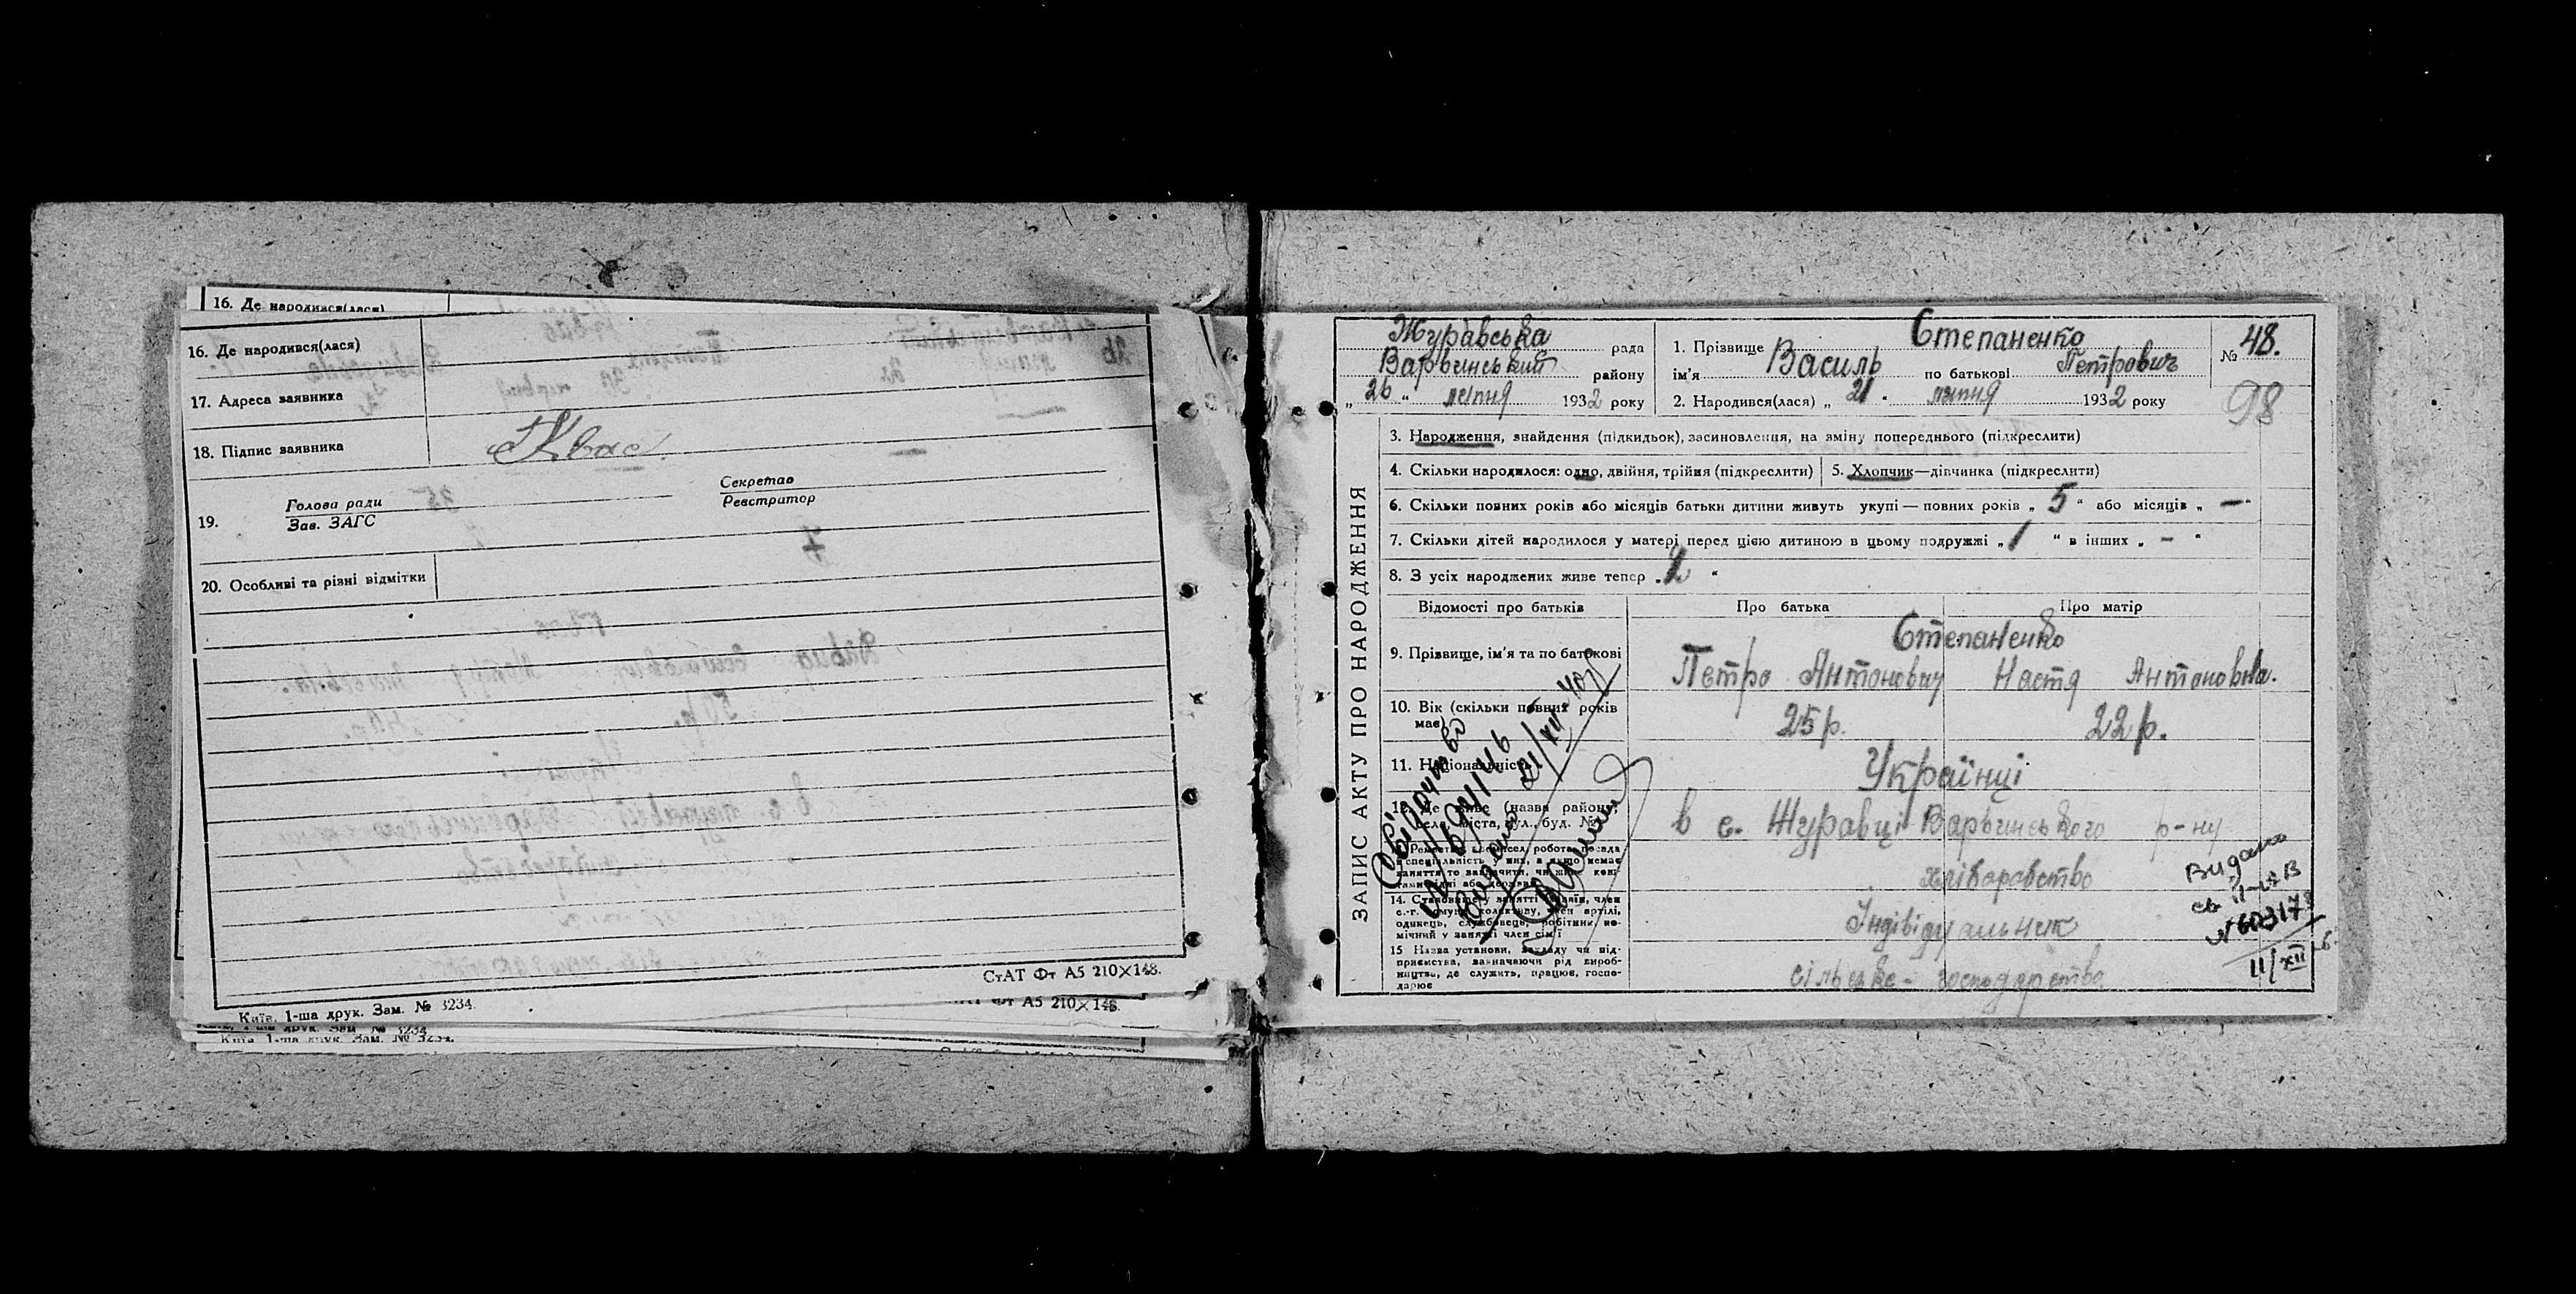 16. Де народився(лася)
16. Де народився(лася)
17. Адреса заявника
18. Підпис заявника Квас
19. Голова ради
Зав. ЗАГС
Секретар
Реєстратор
20. Особливі та різні відмітки
СтАТ Фт А5 210×148.
Київ. 1-ша друк. Зам. № 3234.
Фт А5 210×148
Київ. 1-ша друк. Зам. № 3234.
Київ. 1-ша друк. Зам. № 3234.
ЗАПИС АКТУ ПРО НАРОДЖЕННЯ
Журавська рада
Варвинський району
„ 26 “ липня 1932 року
1. Прізвище Степаненко
ім'я Василь по батькові Петрович
2. Народився(лася) „ 21 “ липня 1932 року
№ 48.
98
3. Народження, знайдення (підкидьок), засиновлення, на зміну попереднього (підкреслити)
4. Скільки народилося: одно, двійня, трійня (підкреслити) 5. Хлопчик—дівчинка (підкреслити)
6. Скільки повних років або місяців батьки дитини живуть укупі — повних років „ 5 “ або місяців „ — “
7. Скільки дітей народилося у матері перед цією дитиною в цьому подружжі „ 1 “ в інших „ - “
8. З усіх народжених живе тепер „
Відомості про батьків Про батька Про матір
9. Прізвище, ім'я та по батькові
Степаненко
Петро Антонович Настя Антоновна.
10. Вік (скільки повних років має)
25 р. 22 р.
11. Національність Українці
12. Де живе (назва району, села, міста, вул., буд. №)
в с. Журавці Варвинського р-ну
хліборобство
14. Становище у занятті
Індивідуальник
15 Назва установи, закладу чи під-
приємства, зазначаючи рід вироб-
ництва, де служить, працює, госпо-
дарює
сільське-господарство
Свідоцтво
видано 21/XII
Видано
св
11/XII